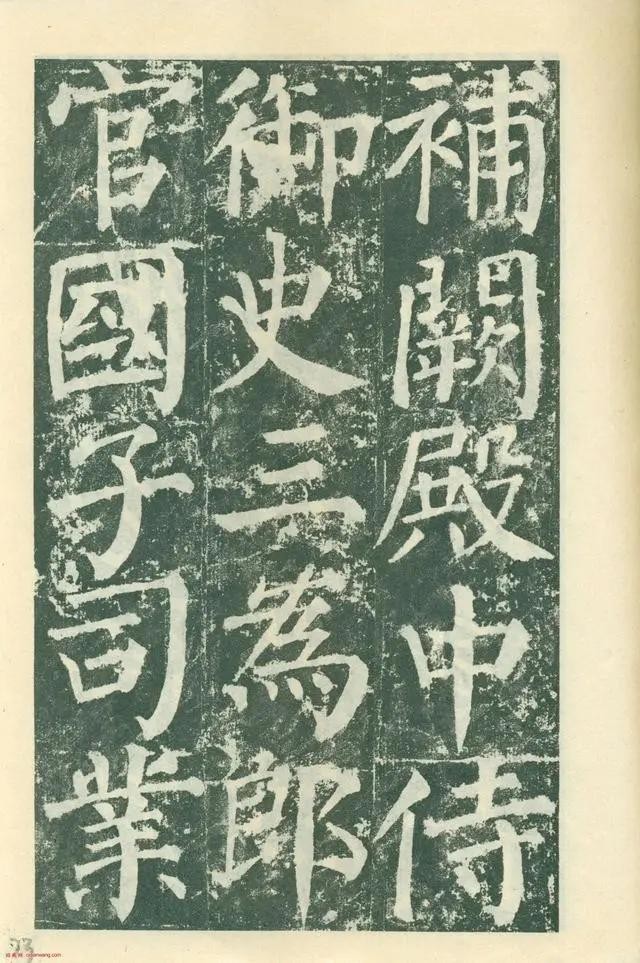 補闕殿中侍
御史三為郎
官國子司業